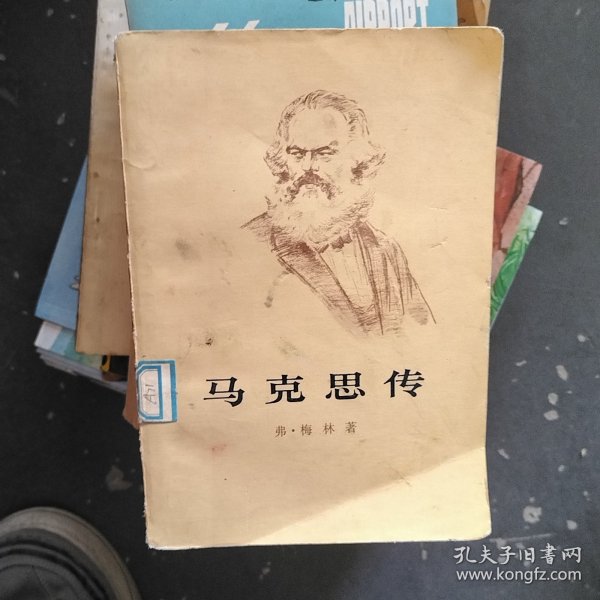 AIRPORT
马克思传
弗·梅林著
A71
孔夫子旧书网
www.kongfz.com